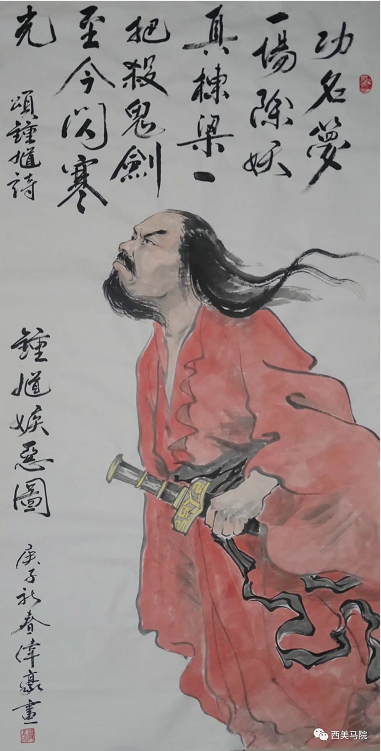 功名夢
一場除妖
真棟梁一
把殺鬼劍
至今閃寒
光
頌鍾馗詩
鍾馗嫉惡圖
庚子春偉豪畫
西美马院